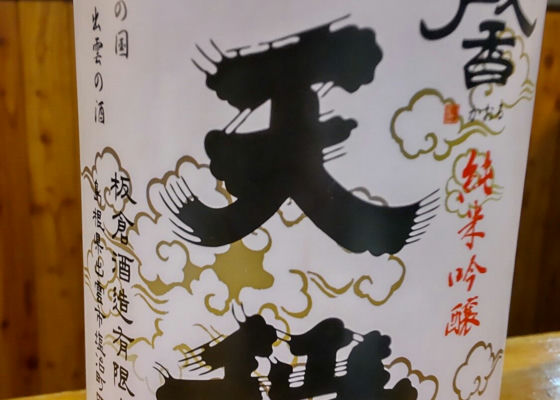 馨
かおる
純米吟醸
天
の国 出雲の酒
板倉酒造有限
島根県出雲市塩冶町